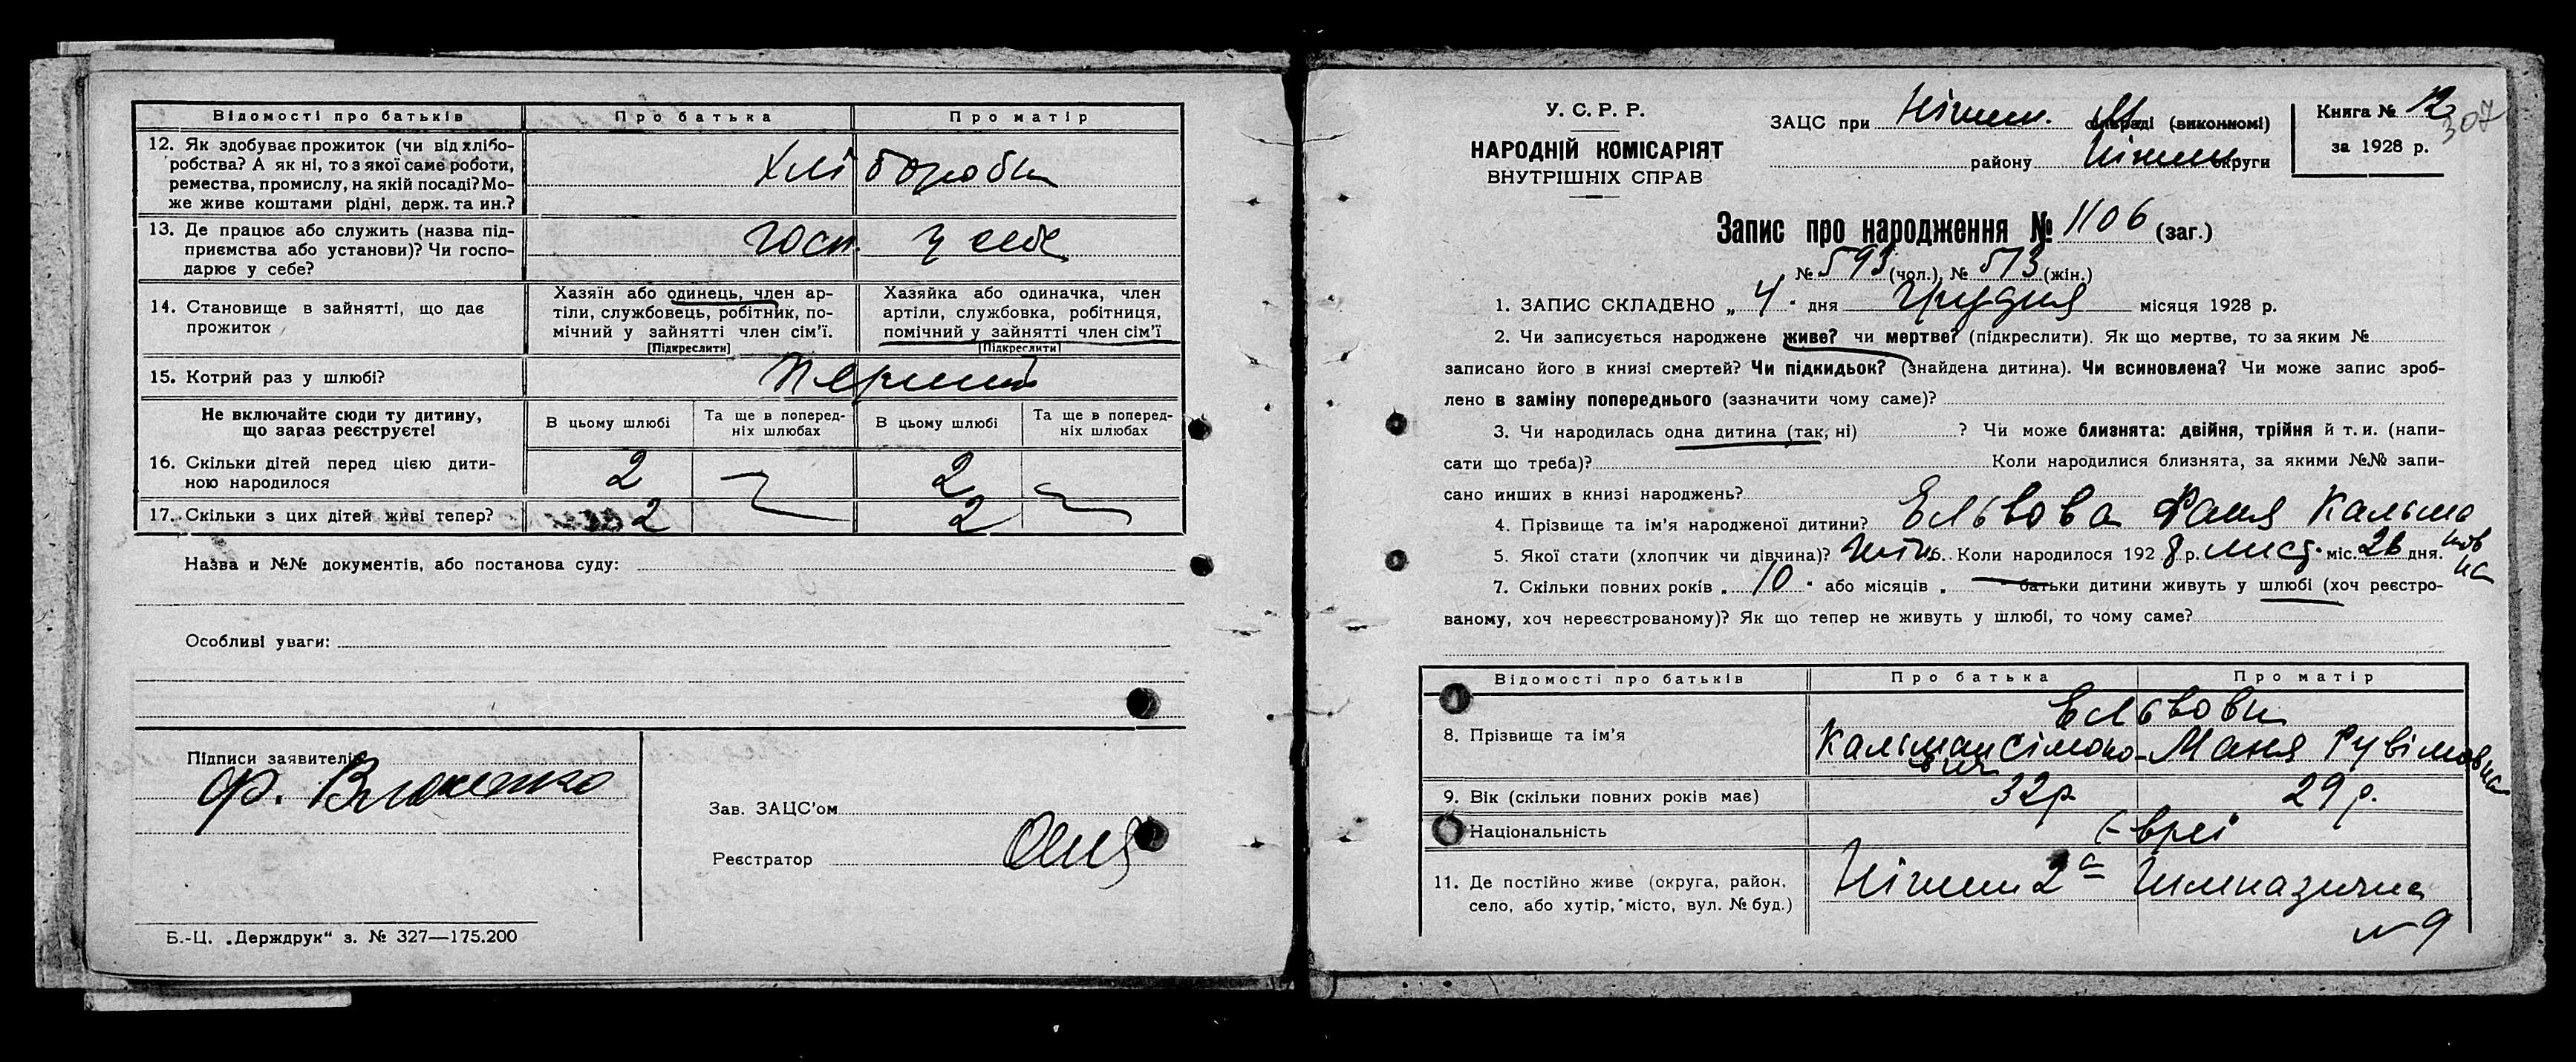 Відомості про батьків Про батька Про матір
12. Як здобуває прожиток (чи від хлібо-
робства? А як ні, то з якої саме роботи,
ремества, промислу, на якій посаді? Мо-
же живе коштами рідні, держ. та ин.?
Хлібороби
13. Де працює або служить (назва під-
приємства або установи)? Чи госпо-
дарює у себе?
госп. у себе
14. Становище в зайнятті, що дає
прожиток
Хазяїн або одинець, член ар-
тіли, службовець, робітник, по-
мічний у зайнятті член сім'ї.
[Підкреслити]
Хазяйка або одиначка, член
артіли, службовка, робітниця,
помічний у зайнятті член сім'ї
[Підкреслити]
15. Котрий раз у шлюбі? Перший
Не включайте сюди ту дитину,
що зараз реєструєте!
В цьому шлюбі
Та ще в поперед-
ніх шлюбах
В цьому шлюбі
Та ще в поперед-
ніх шлюбах
16. Скільки дітей перед цією дити-
ною народилося
2 2
17. Скільки з цих дітей живі тепер? 2 2
Назва и №№ документів, або постанова суду:
Особливі уваги:
Підписи заявителів
Ф.
Зав. ЗАЦС'ом
Реєстратор
Б.-Ц. „Держдрук“ з. № 327—175.200
У. С. Р. Р.
НАРОДНІЙ КОМІСАРІЯТ
ВНУТРІШНІХ СПРАВ
ЗАЦС при Ніжин. (виконкомі)
району Ніжин округи
Книга № 12
307
за 1928 р.
Запис про народження № 1106 (заг.)
№ 593 (чол.), № 513 (жін.)
1. ЗАПИС СКЛАДЕНО „ 4 “ дня Грудня місяця 1928 р.
2. Чи записується народжене живе? чи мертве? (підкреслити). Як що мертве, то за яким №
записано його в книзі смертей? Чи підкидьок? (знайдена дитина). Чи всиновлена? Чи може запис зроб-
лено в заміну попереднього (зазначити чому саме)?
3. Чи народилась одна дитина (так, ні) ? Чи може близнята: двійня, трійня й т. и. (напи-
сати що треба)? Коли народилися близнята, за якими №№ запи-
сано инших в книзі народжень?
4. Прізвище та ім'я народженої дитини? Ельвова Фаня Кальма
новна
5. Якої стати (хлопчик чи дівчина)? жін. 6. Коли народилося 192 8 р. лист. міс. 26 дня.
7. Скільки повних років „ 10 “ або місяців „ батьки дитини живуть у шлюбі (хоч реєстро-
ваному, хоч нереєстрованому)? Як що тепер не живуть у шлюбі, то чому саме?
Відомості про батьків Про батька Про матір
Ельвови
8. Прізвище та ім'я Кальман Сімоно-
вич
Маня Рувімовна
9. Вік (скільки повних років має) 32р. 29 р.
Національність Євреї
11. Де постійно живе (округа, район,
село, або хутір, місто, вул. № буд.)
Ніжин 2а Гимназична
№ 9